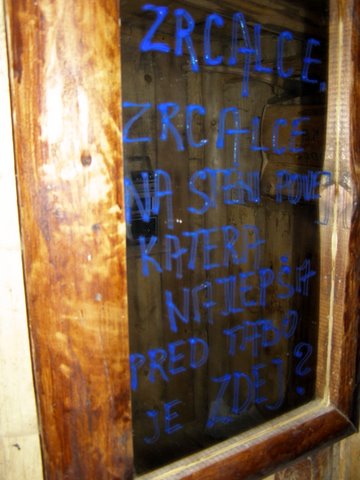 ZRCALCE,
ZRCALCE
NA STENI POVEJ
KATERA
NAJLEPŠA
PRED TABO
JE ZDEJ?